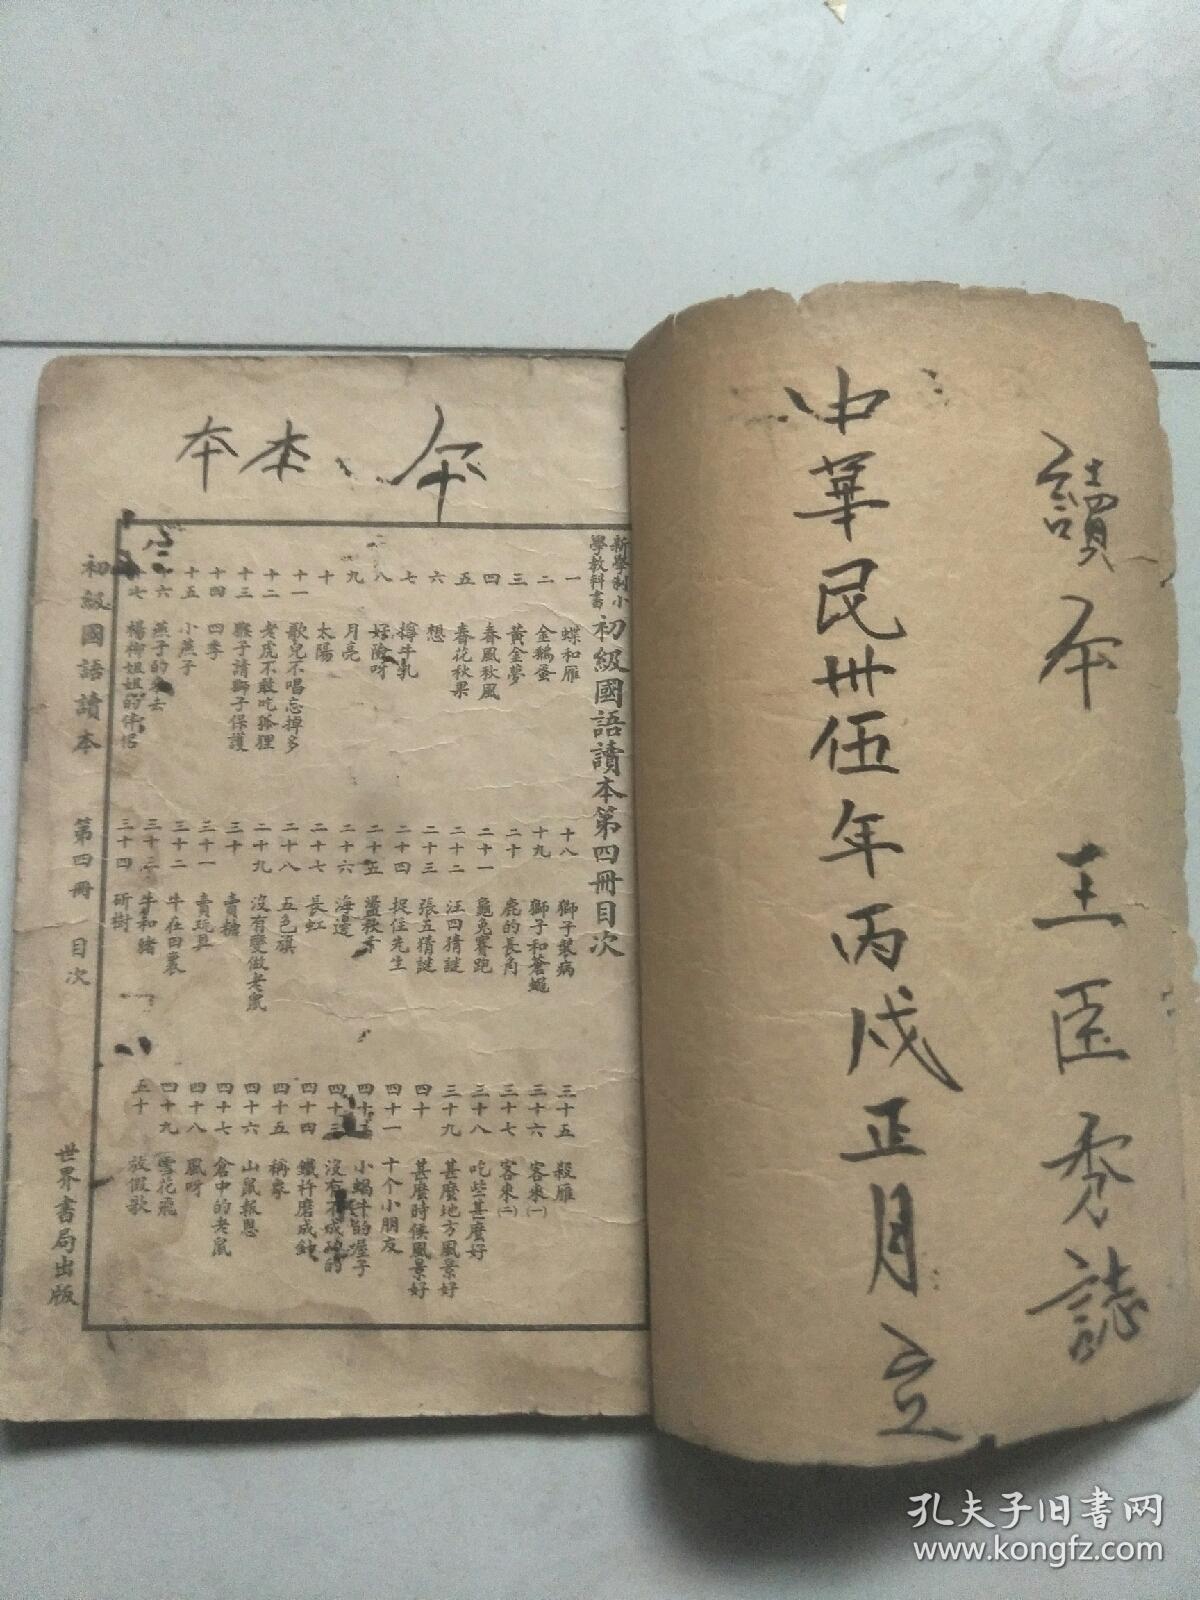 讀本 王臣秀誌
中華民卅伍年丙戌正月立
本本 本
新學制小學教科書 初級國語讀本第四冊目次
一 蝶和雁
二 金鵝蛋
三 黃金夢
四 春風秋風
五 春花秋果
六 想
七 擠牛乳
八 好險呀
九 月亮
十 太陽
十一 歌兒不唱忘掉多
十二 老虎不敢吃狐狸
十三 騾子請獅子保護
十四 四季
十五 小燕子
十六 燕子的來去
十七 楊柳姐姐的伴侶
十八 獅子裝病
十九 獅子和蒼蠅
二十 鹿的長角
二十一 龜兔賽跑
二十二 汪四猜謎
二十三 張五猜謎
二十四 捉住先生
二十五 盪秋千
二十六 海邊
二十七 長虹
二十八 五色旗
二十九 沒有變做老鼠
三十 賣槍
三十一 賣玩具
三十二 牛在田裏
三十三 牛和豬
三十四 斫樹
三十五 殺雁
三十六 客來(一)
三十七 客來(二)
三十八 吃些甚麼好
三十九 甚麼地方風景好
四十 甚麼時候風景好
四十一 十个小朋友
四十二 小蝸牛的屋子
四十三 沒有不成功的
四十四 鐵杵磨成針
四十五 稱象
四十六 山鼠報恩
四十七 倉中的老鼠
四十八 風呀
四十九 雪花飛
五十 放假歌
初級國語讀本 第四冊 目次 世界書局出版
孔夫子旧书网
www.kongfz.com